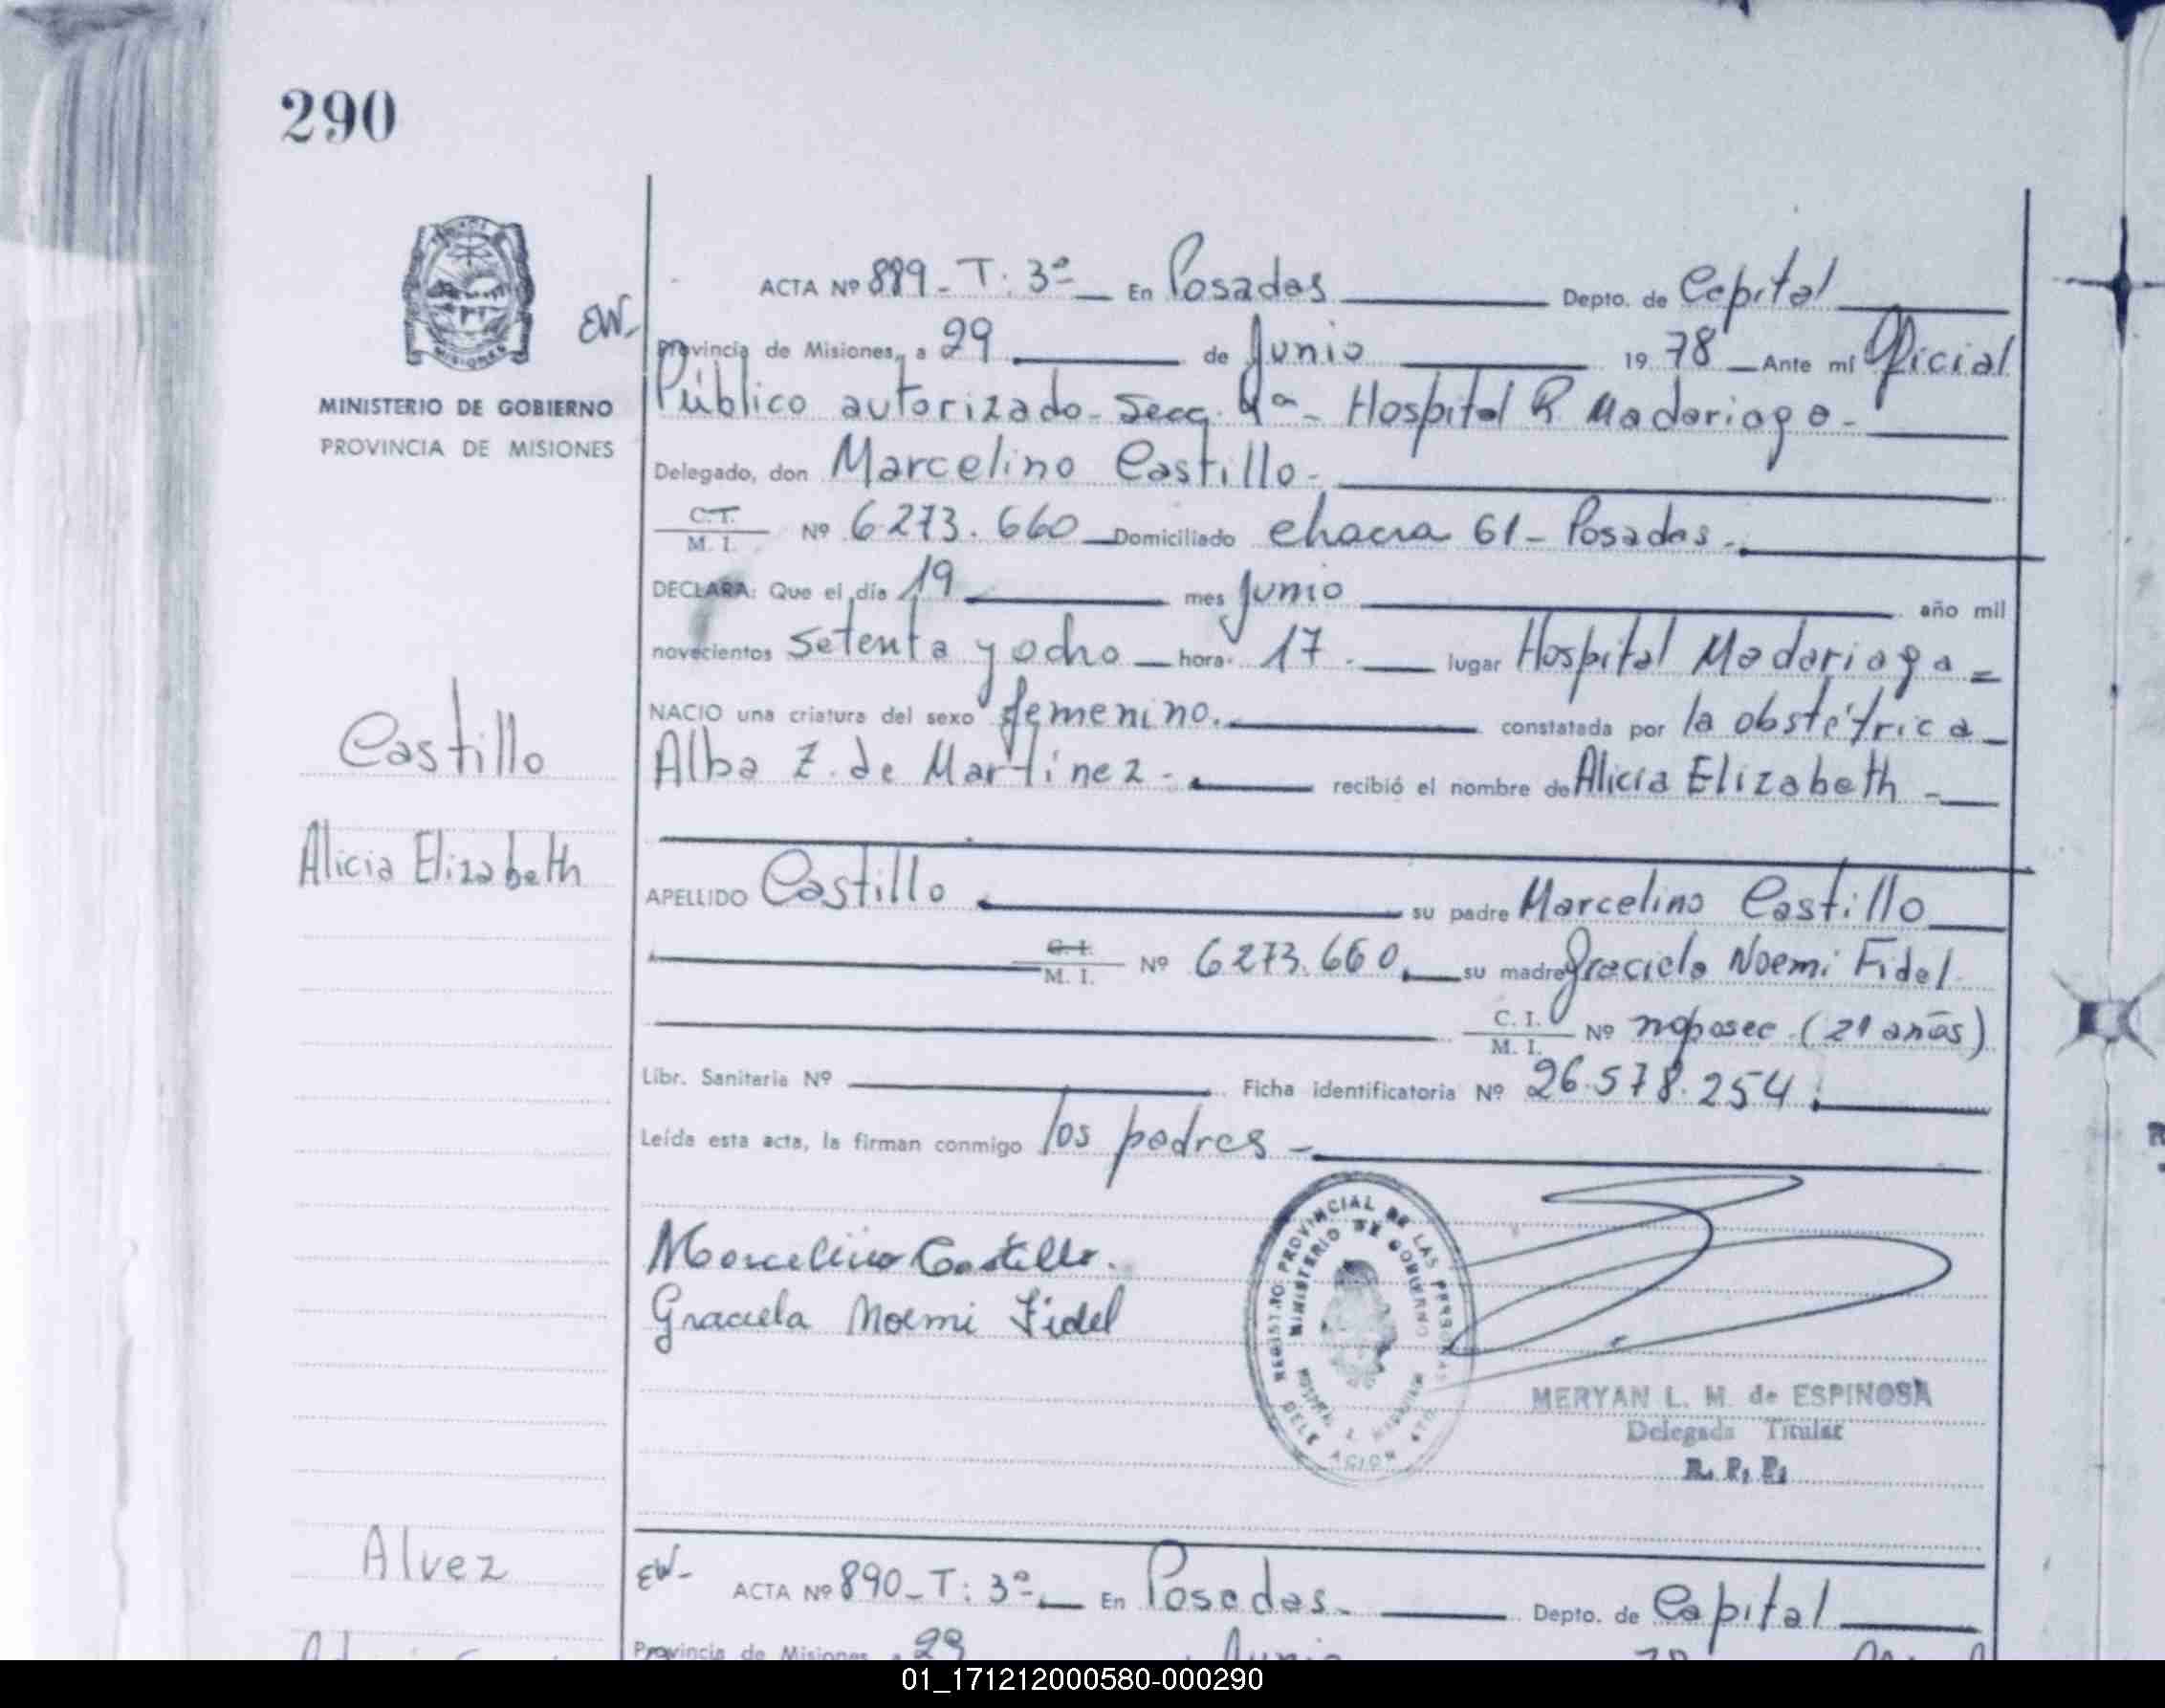 290
ACTA Nº 889 - T: 3ª - En Posadas Depto. de Capital
EW-
Provincia de Misiones, a 29 de Junio 1978 Ante mí Oficial
Público autorizado - Secc. 4ª - Hospital R. Madariaga -
MINISTERIO DE GOBIERNO
PROVINCIA DE MISIONES
Delegado, don Marcelino Castillo -
C.I. M. I. Nº 6.273.660 Domiciliado chacra 61 - Posadas -
DECLARA: Que el día 19 mes Junio año mil
novecientos setenta y ocho hora 17 - lugar Hospital Madariaga =
NACIO una criatura del sexo femenino. constatada por la obstétrica
Alba Z. de Martínez - recibió el nombre de Alicia Elizabeth -
Castillo
Alicia Elizabeth
APELLIDO Castillo su padre Marcelino Castillo
C.I. M. I. Nº 6.273.660 su madre Graciela Noemi Fidel
C. I. M. I. Nº no posee (21 años)
Libr. Sanitaria Nº Ficha identificatoria Nº 26.578.254.
Leída esta acta, la firman conmigo los padres -
Marcelino Castillo.
Graciela Noemi Fidel
REGISTRO PROVINCIAL DE LAS PERSONAS
MINISTERIO DE GOBIERNO
MERYAN L. M. de ESPINOSA
Delegada Titular
R. P. P.
Alvez
EW- ACTA Nº 890 - T: 3ª - En Posadas - Depto. de Capital
Provincia de Misiones, a 29 Junio 78
01_171212000580-000290